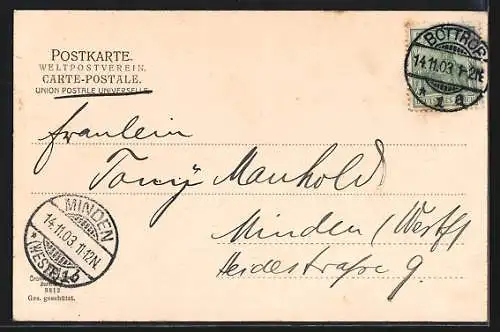 POSTKARTE.
WELTPOSTVEREIN.
CARTE-POSTALE.
UNION POSTALE UNIVERSELLE.
BOTTROP
14.11.03 1-2N.
* a
Fräulein
Tony Manhold
Minden (Westf)
Heidestraße 9.
MINDEN
14.11.03 11-12N.
* (WESTF.) 1 b
8812
Ges. geschützt.